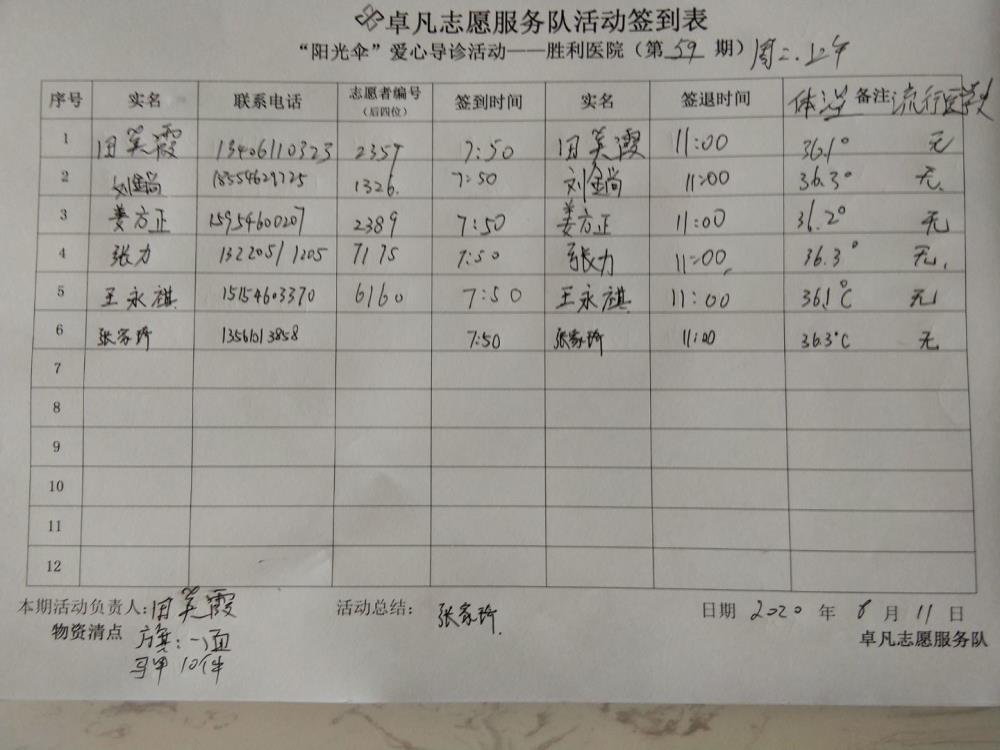 卓凡志愿服务队活动签到表
“阳光伞”爱心导诊活动——胜利医院（第 59 期）周二.上午
序号 实名 联系电话 志愿者编号（后四位） 签到时间 实名 签退时间 体温 备注 流行医学史
1 田美霞 13406110323 2357 7:50 田美霞 11:00 36.1° 无
2 刘 18554629725 1326. 7:50 刘 11:00 36.3° 无.
3 姜方正 15954600207 2389 7:50 姜方正 11:00 36.2° 无
4 张力 13220511205 7175 7:50 张力 11:00. 36.3° 无.
5 王永祺 15154603370 6160 7:50 王永祺 11:00 36.1℃ 无
6 张家玲 13561013858 7:50 张家玲 11:00 36.3℃ 无
7
8
9
10
11
12
本期活动负责人: 田美霞 活动总结: 张家玲. 日期 2020 年 8 月 11 日
物资清点 旗: 一面 卓凡志愿服务队
马甲 10件